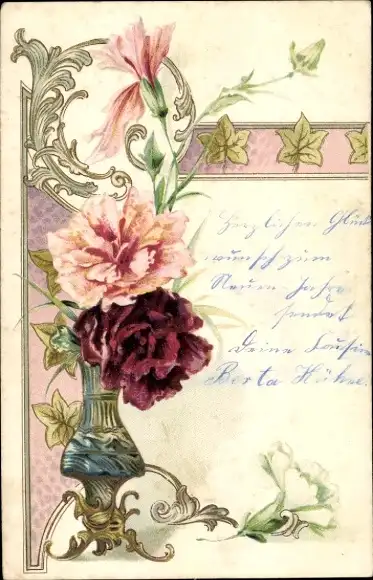 Herzlichen Glück
wunsch zum
Neuen Jahre
sendet
Deine Cousine
Berta Hühne.